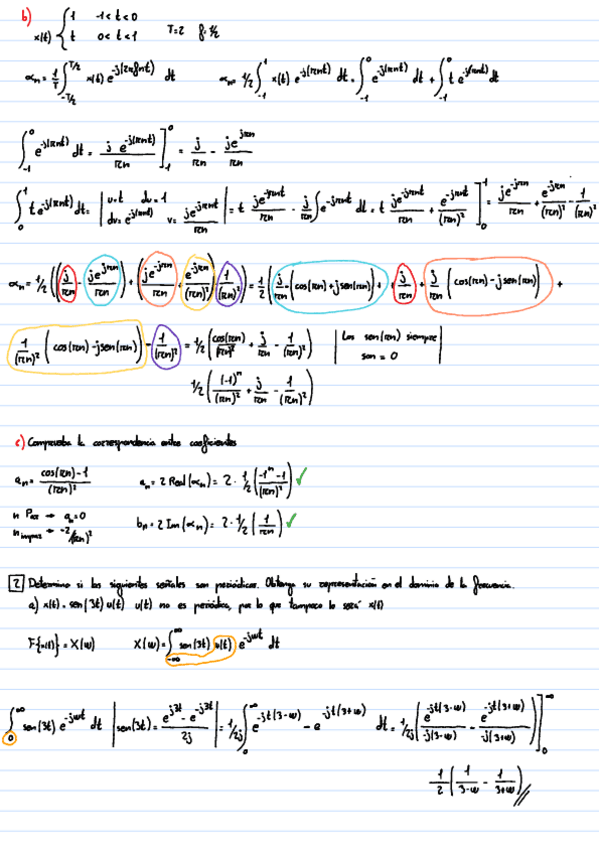 b) x(t) { 1 -1<t<0
t 0<t<1 T=2 f=1/2
αn = 1/T ∫_{-T/2}^{T/2} x(t) e^{-j(2πfnt)} dt αn = 1/2 ∫_{-1}^{1} x(t) e^{-j(πnt)} dt = ∫_{-1}^{0} e^{-j(πnt)} dt + ∫_{0}^{1} t e^{-j(πnt)} dt
∫_{-1}^{0} e^{-j(πnt)} dt = j e^{-j(πnt)}/πn ]_{-1}^{0} = j/πn - je^{jπn}/πn
∫_{0}^{1} t e^{-j(πnt)} dt = | u=t du=1 dv=e^{-j(πnt)} v= je^{-jπnt}/πn | = t je^{-jπnt}/πn - j/πn ∫ e^{-jπnt} dt = t je^{-jπnt}/πn + e^{-jπnt}/(πn)² ]_{0}^{1} = je^{-jπn}/πn + e^{-jπn}/(πn)² - 1/(πn)²
αn = 1/2 ((j/πn - je^{jπn}/πn) + (je^{-jπn}/πn + e^{-jπn}/(πn)² - 1/(πn)²)) = 1/2 (j/πn - (cos(πn)+jsen(πn)) + j/πn + j/πn (cos(πn)-jsen(πn)) +
1/(πn)² (cos(πn)-jsen(πn)) - 1/(πn)² = 1/2 (cos(πn)/(πn)² + j/πn - 1/(πn)²) | Los sen(πn) siempre son = 0 |
1/2 ((-1)^n/(πn)² + j/πn - 1/(πn)²)
c) Comprueba la correspondencia entre coeficientes
an = cos(πn)-1/(πn)² an = 2 Real(αn) = 2 · 1/2 (-1^n -1/(πn)²) ✓
n Par → an=0
n impar → -2/(πn)² bn = 2 Im(αn) = 2 · 1/2 (1/πn) ✓
2 Determina si las siguientes señales son periódicas. Obtenga su representación en el dominio de la frecuencia.
a) x(t) = sen(3t) u(t) u(t) no es periódica, por lo que tampoco lo será x(t)
F{x(t)} = X(w) X(w) = ∫_{-∞}^{∞} sen(3t) u(t) e^{-jwt} dt
∫_{0}^{∞} sen(3t) e^{-jwt} dt | sen(3t) = e^{j3t} - e^{-j3t}/2j | = 1/2j ∫_{0}^{∞} e^{-jt(3-w)} - e^{-jt(3+w)} dt = 1/2j ( e^{-jt(3-w)}/-j(3-w) - e^{-jt(3+w)}/-j(3+w) ) ]_{0}^{∞}
1/2 (1/3-w - 1/3+w)//